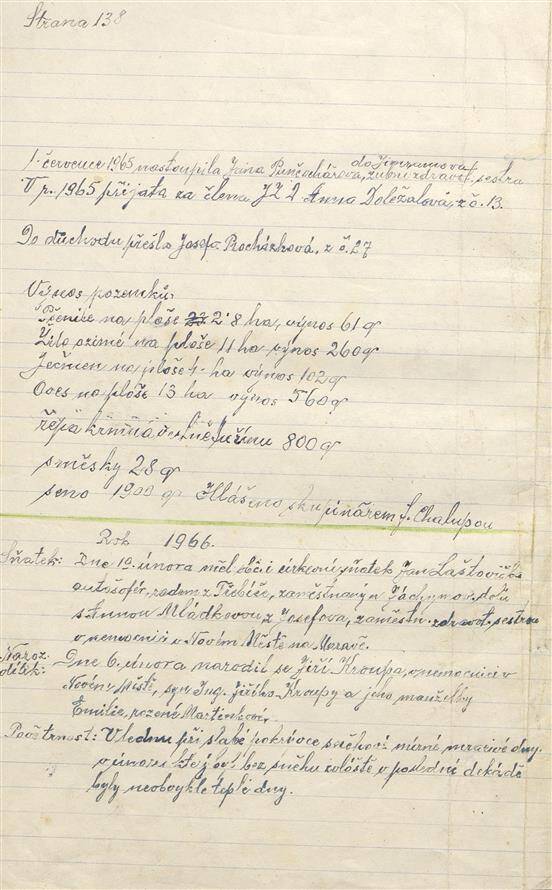 Strana 138
1. července 1965 nastoupila Jana Punčochářová, do Jimramova, zubní zdravot. sestra
V r. 1965 přijata za člena JZD Anna Doležalová, z č. 13.
Do důchodu přešla Josefa Procházková, z č. 27
Výnos pozemků:
Pšenice na ploše 2·8 ha, výnos 61 q
Žito ozimé na ploše 11 ha výnos 260 q
Ječmen na ploše 4- ha výnos 102 q
Oves na ploše 13 ha výnos 560 q
řepa krmná 800 q
směsky 28 q
seno 1900 q Hlášeno skupinářem J. Chalupou
Rok 1966.
Sňatek: Dne 19. února měl obč. i církevní sňatek Jan Laštovička
autošofér, rodem z Třebíče, zaměstnaný u Jáchymov. dolů
s Annou Mládkovou z Josefova, zaměstn. zdravot. sestrou
v nemocnici v Novém Městě na Moravě.
Naroz. dítek: Dne 6. února narodil se Jiří Kroupa, v nemocnici v
Novém Městě, syn Ing. Jiřího Kroupy a jeho manželky
Emilie, rozené Martínkové.
Povětrnost: V lednu při slabé pokrývce sněhové mírné mrazivé dny.
v únoru byl bez sněhu zvláště v poslední dekádě
byly neobvykle teplé dny.